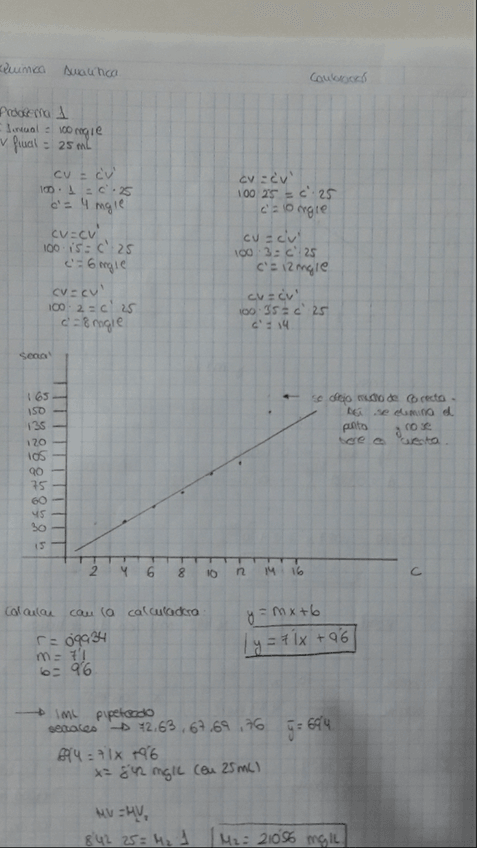 Química Analítica
Problema 1
C inicial = 100 mg/l
V final = 25 mL
CV = C'V'
100 · 1 = C' · 25
C' = 4 mg/l
CV = C'V'
100 2'5 = C' · 25
C' = 10 mg/l
CV = CV'
100 · 1'5 = C' · 25
C' = 6 mg/l
CV = C'V'
100 · 3 = C' · 25
C' = 12 mg/l
CV = CV'
100 · 2 = C' 25
C' = 8 mg/l
CV = C'V'
100 · 3'5 = C' · 25
C' = 14
señal
1 65
150
135
120
105
90
75
60
45
30
15
2 4 6 8 10 12 14 16 C
← se aleja mucho de la recta
se elimina el
punto y no se
tiene en cuenta.
Calcular con la calculadora:
r = 0'9934
m = 7'1
b = 9'6
y = mx + b
y = 7'1x + 9'6
→ 1mL pipeteado
señales → 72, 63, 67, 69, 76 ȳ = 69'4
69'4 = 7'1x + 9'6
x = 8'42 mg/L (en 25mL)
8'42 25 = M₂ 1
M₂ = 210'56 mg/L